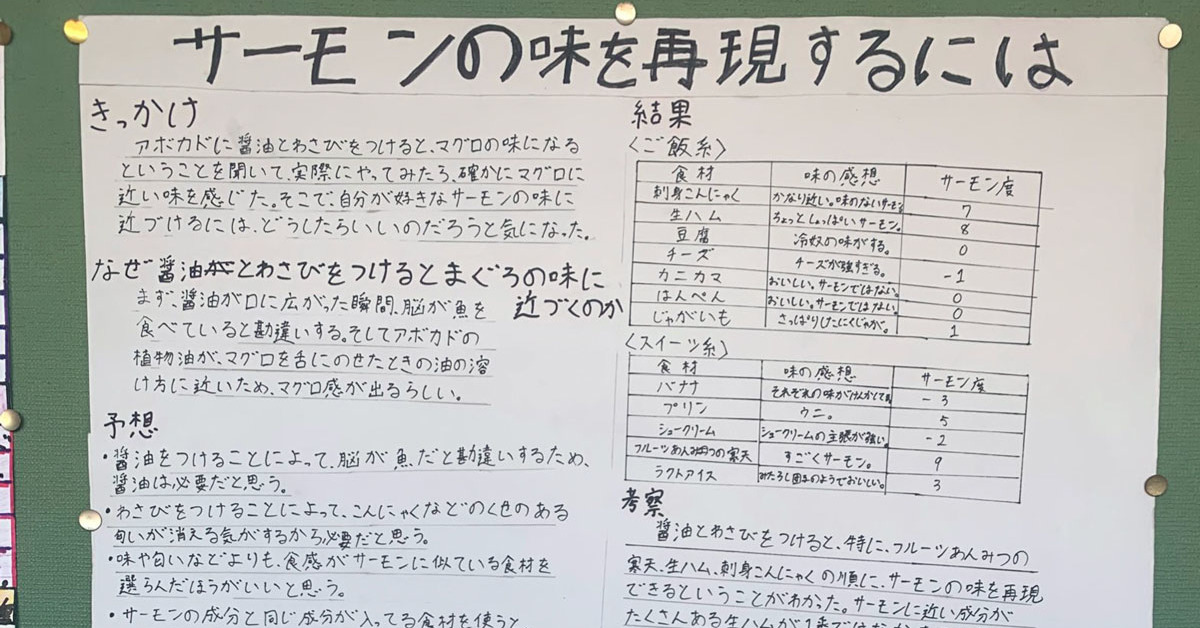 サーモンの味を再現するには
きっかけ
アボカドに醤油とわさびをつけると、マグロの味になる
ということを聞いて、実際にやってみたら、確かにマグロに
近い味を感じた。そこで、自分が好きなサーモンの味に
近づけるには、どうしたらいいのだろうと気になった。
なぜ醤油とわさびをつけるとまぐろの味に
近づくのか
まず、醤油が口に広がった瞬間、脳が魚を
食べていると勘違いする。そしてアボカドの
植物油が、マグロを舌にのせたときの油の溶
け方に近いため、マグロ感が出るらしい。
予想
・醤油をつけることによって、脳が魚だと勘違いするため、
醤油は必要だと思う。
・わさびをつけることによって、こんにゃくなどのくせのある
匂いが消える気がするから必要だと思う。
・味や匂いなどよりも、食感がサーモンに似ている食材を
選らんだほうがいいと思う。
・サーモンの成分と同じ成分が入ってる食材を使うと
結果
〈ご飯系〉
食材 味の感想 サーモン度
刺身こんにゃく かなり近い。味のないサーモン 7
生ハム ちょっとしょっぱいサーモン。 8
豆腐 冷奴の味がする。 0
チーズ チーズが強すぎる。 -1
カニカマ おいしい。サーモンではない。 0
はんぺん おいしい。サーモンではない。 0
じゃがいも さっぱりしたにくじゃが。 1
〈スイーツ系〉
食材 味の感想 サーモン度
バナナ それぞれの味がけんかしてる -3
プリン ウニ。 5
シュークリーム シュークリームの主張が強い。 -2
フルーツあんみつの寒天 すごくサーモン。 9
ラクトアイス みたらし団子のようでおいしい。 3
考察
醤油とわさびをつけると、特に、フルーツあんみつの
寒天、生ハム、刺身こんにゃくの順に、サーモンの味を再現
できるということがわかった。サーモンに近い成分が
たくさんある生ハムが1番ではなかった